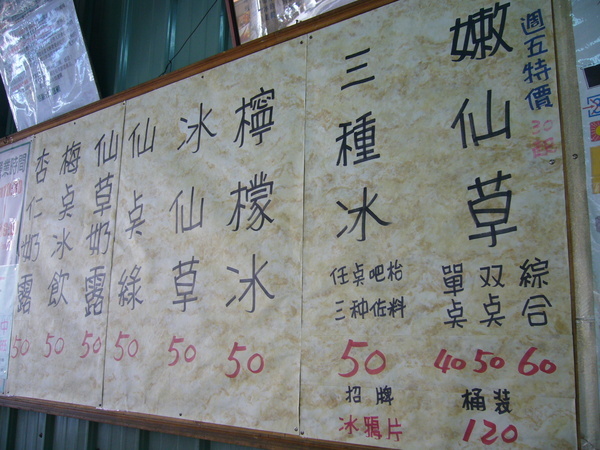 週五特價 30起
嫩仙草
綜合 60
双桌 50
單桌 40
桶装 120
三種冰
任桌吧枱
三种佐料
50
招牌
冰鴉片
檸檬冰 50
冰仙草 50
仙桌綠 50
仙草奶露 50
梅桌冰飲 50
杏仁奶露 50